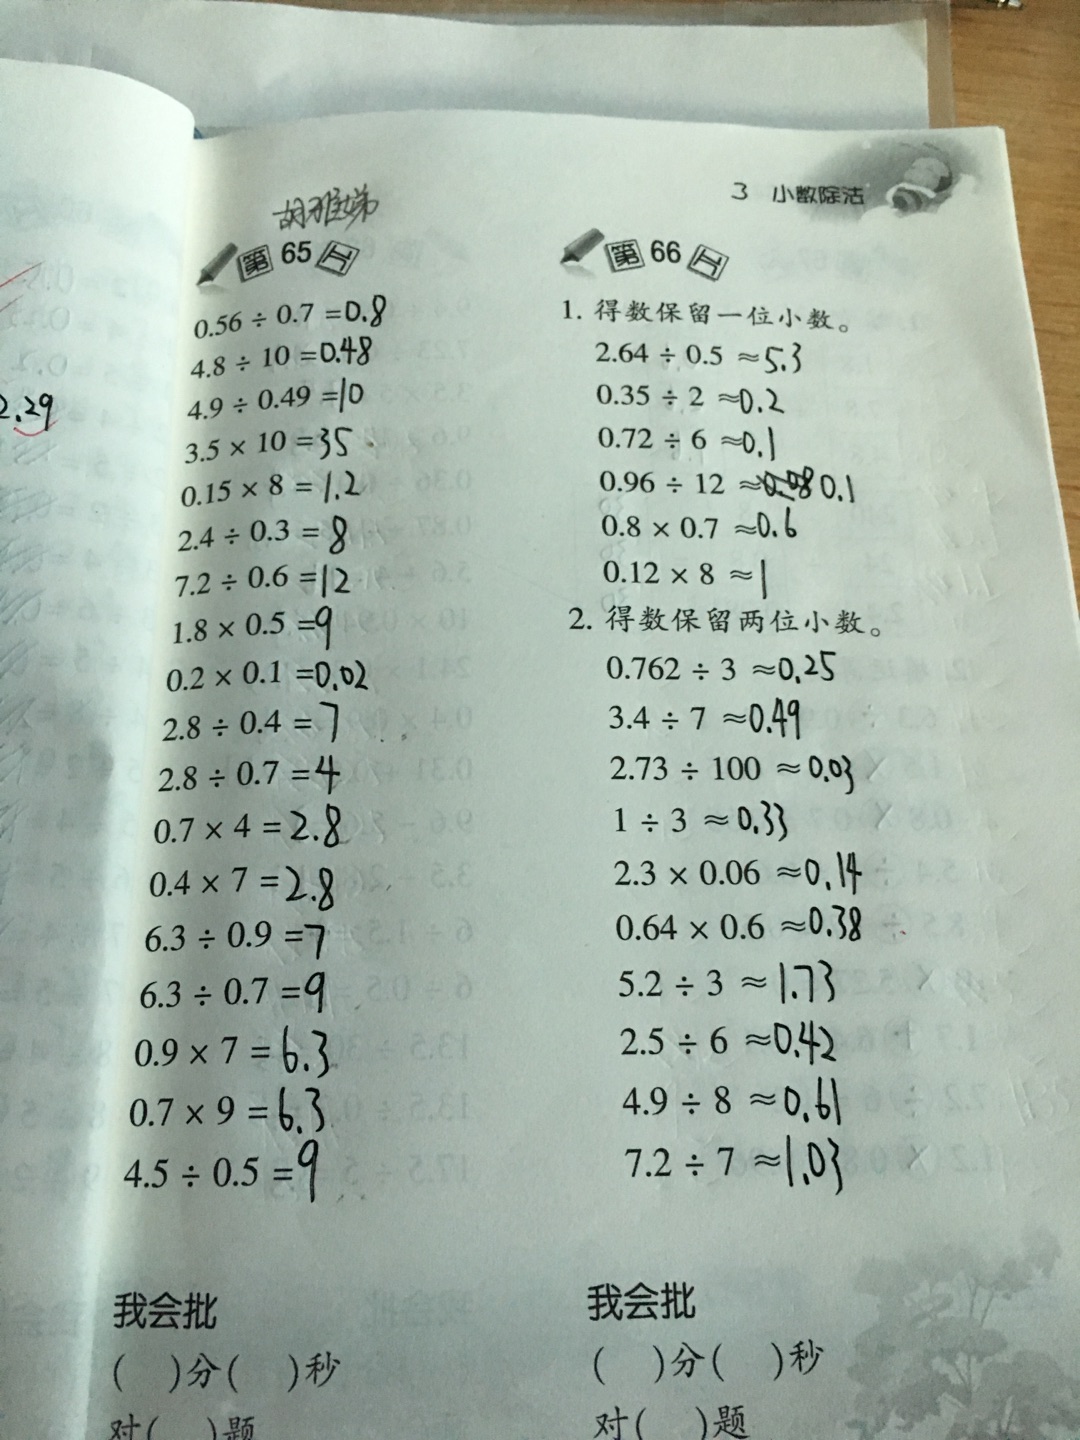 2.29
3 小数除法
胡雅娣
第65天
0.56 ÷ 0.7 =0.8
4.8 ÷ 10 =0.48
4.9 ÷ 0.49 =10
3.5 × 10 =35
0.15 × 8 =1.2
2.4 ÷ 0.3 =8
7.2 ÷ 0.6 =12
1.8 × 0.5 =9
0.2 × 0.1 =0.02
2.8 ÷ 0.4 =7
2.8 ÷ 0.7 =4
0.7 × 4 =2.8
0.4 × 7 =2.8
6.3 ÷ 0.9 =7
6.3 ÷ 0.7 =9
0.9 × 7 =6.3
0.7 × 9 =6.3
4.5 ÷ 0.5 =9
我会批
( )分( )秒
对( )题
第66天
1. 得数保留一位小数。
2.64 ÷ 0.5 ≈5.3
0.35 ÷ 2 ≈0.2
0.72 ÷ 6 ≈0.1
0.96 ÷ 12 ≈0.08 0.1
0.8 × 0.7 ≈0.6
0.12 × 8 ≈1
2. 得数保留两位小数。
0.762 ÷ 3 ≈0.25
3.4 ÷ 7 ≈0.49
2.73 ÷ 100 ≈0.03
1 ÷ 3 ≈0.33
2.3 × 0.06 ≈0.14
0.64 × 0.6 ≈0.38
5.2 ÷ 3 ≈1.73
2.5 ÷ 6 ≈0.42
4.9 ÷ 8 ≈0.61
7.2 ÷ 7 ≈1.03
我会批
( )分( )秒
对( )题